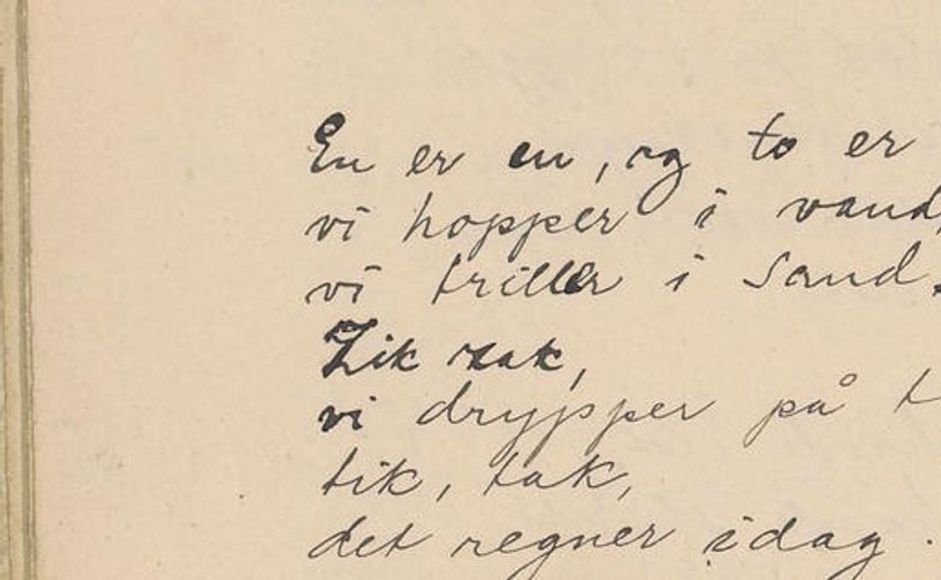 En er en, og to er
vi hopper i vand,
vi triller i sand.
Zik zak,
vi drypper på t
tik, tak,
det regner idag.